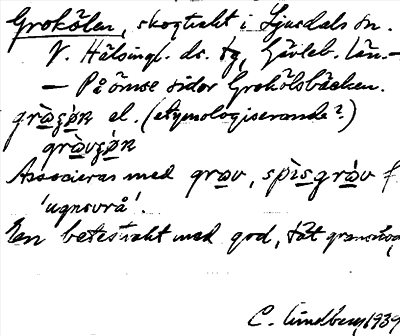 Grokölen, skogtrakt i Ljusdals sn.
V. Hälsingl. ds. tg, Gävleb. län.
— På ömse sidor Grokölsbäcken.
el. (etymologiserande?)
Associeras med grav, spìsgràv f
'ugnsvrå'.
En betestrakt med god, tät
C. Lindberg 1939